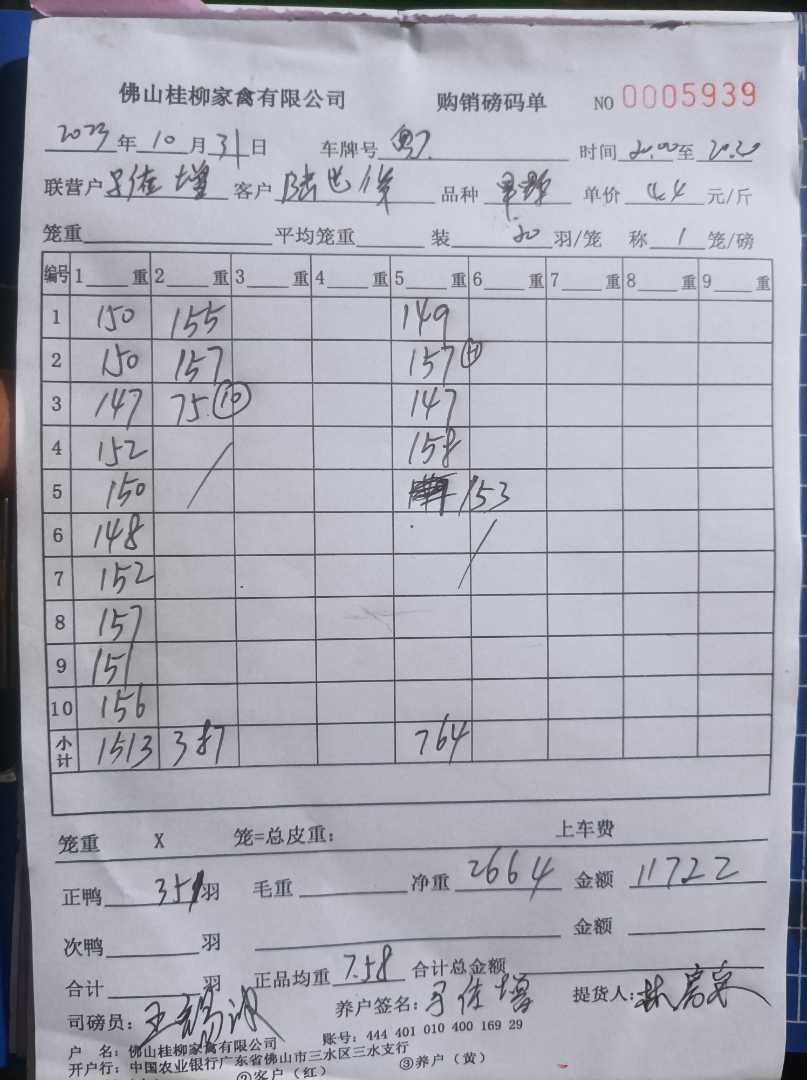 佛山桂柳家禽有限公司 购销磅码单 NO 0005939
2023年 10月 31日 车牌号 粤 时间 20.00 至 20.20
联营户 佳增 客户 陆 品种 单价 4.4 元/斤
笼重 平均笼重 装 20 羽/笼 称 1 笼/磅
编号 1 重 2 重 3 重 4 重 5 重 6 重 7 重 8 重 9 重
1 150 155 149
2 150 157 157
3 147 75 10 147
4 152 158
5 150 153
6 148
7 152
8 157
9 151
10 156
小计 1513 387 764
笼重 X 笼=总皮重: 上车费
正鸭 351 羽 毛重 净重 2664 金额 11722
次鸭 羽 金额
合计 羽 正品均重 7.58 合计总金额
司磅员: 王 养户签名: 佳增 提货人: 林
户 名: 佛山桂柳家禽有限公司 账号: 444 401 010 400 169 29
开户行: 中国农业银行广东省佛山市三水区三水支行
②客户（红） ③养户（黄）